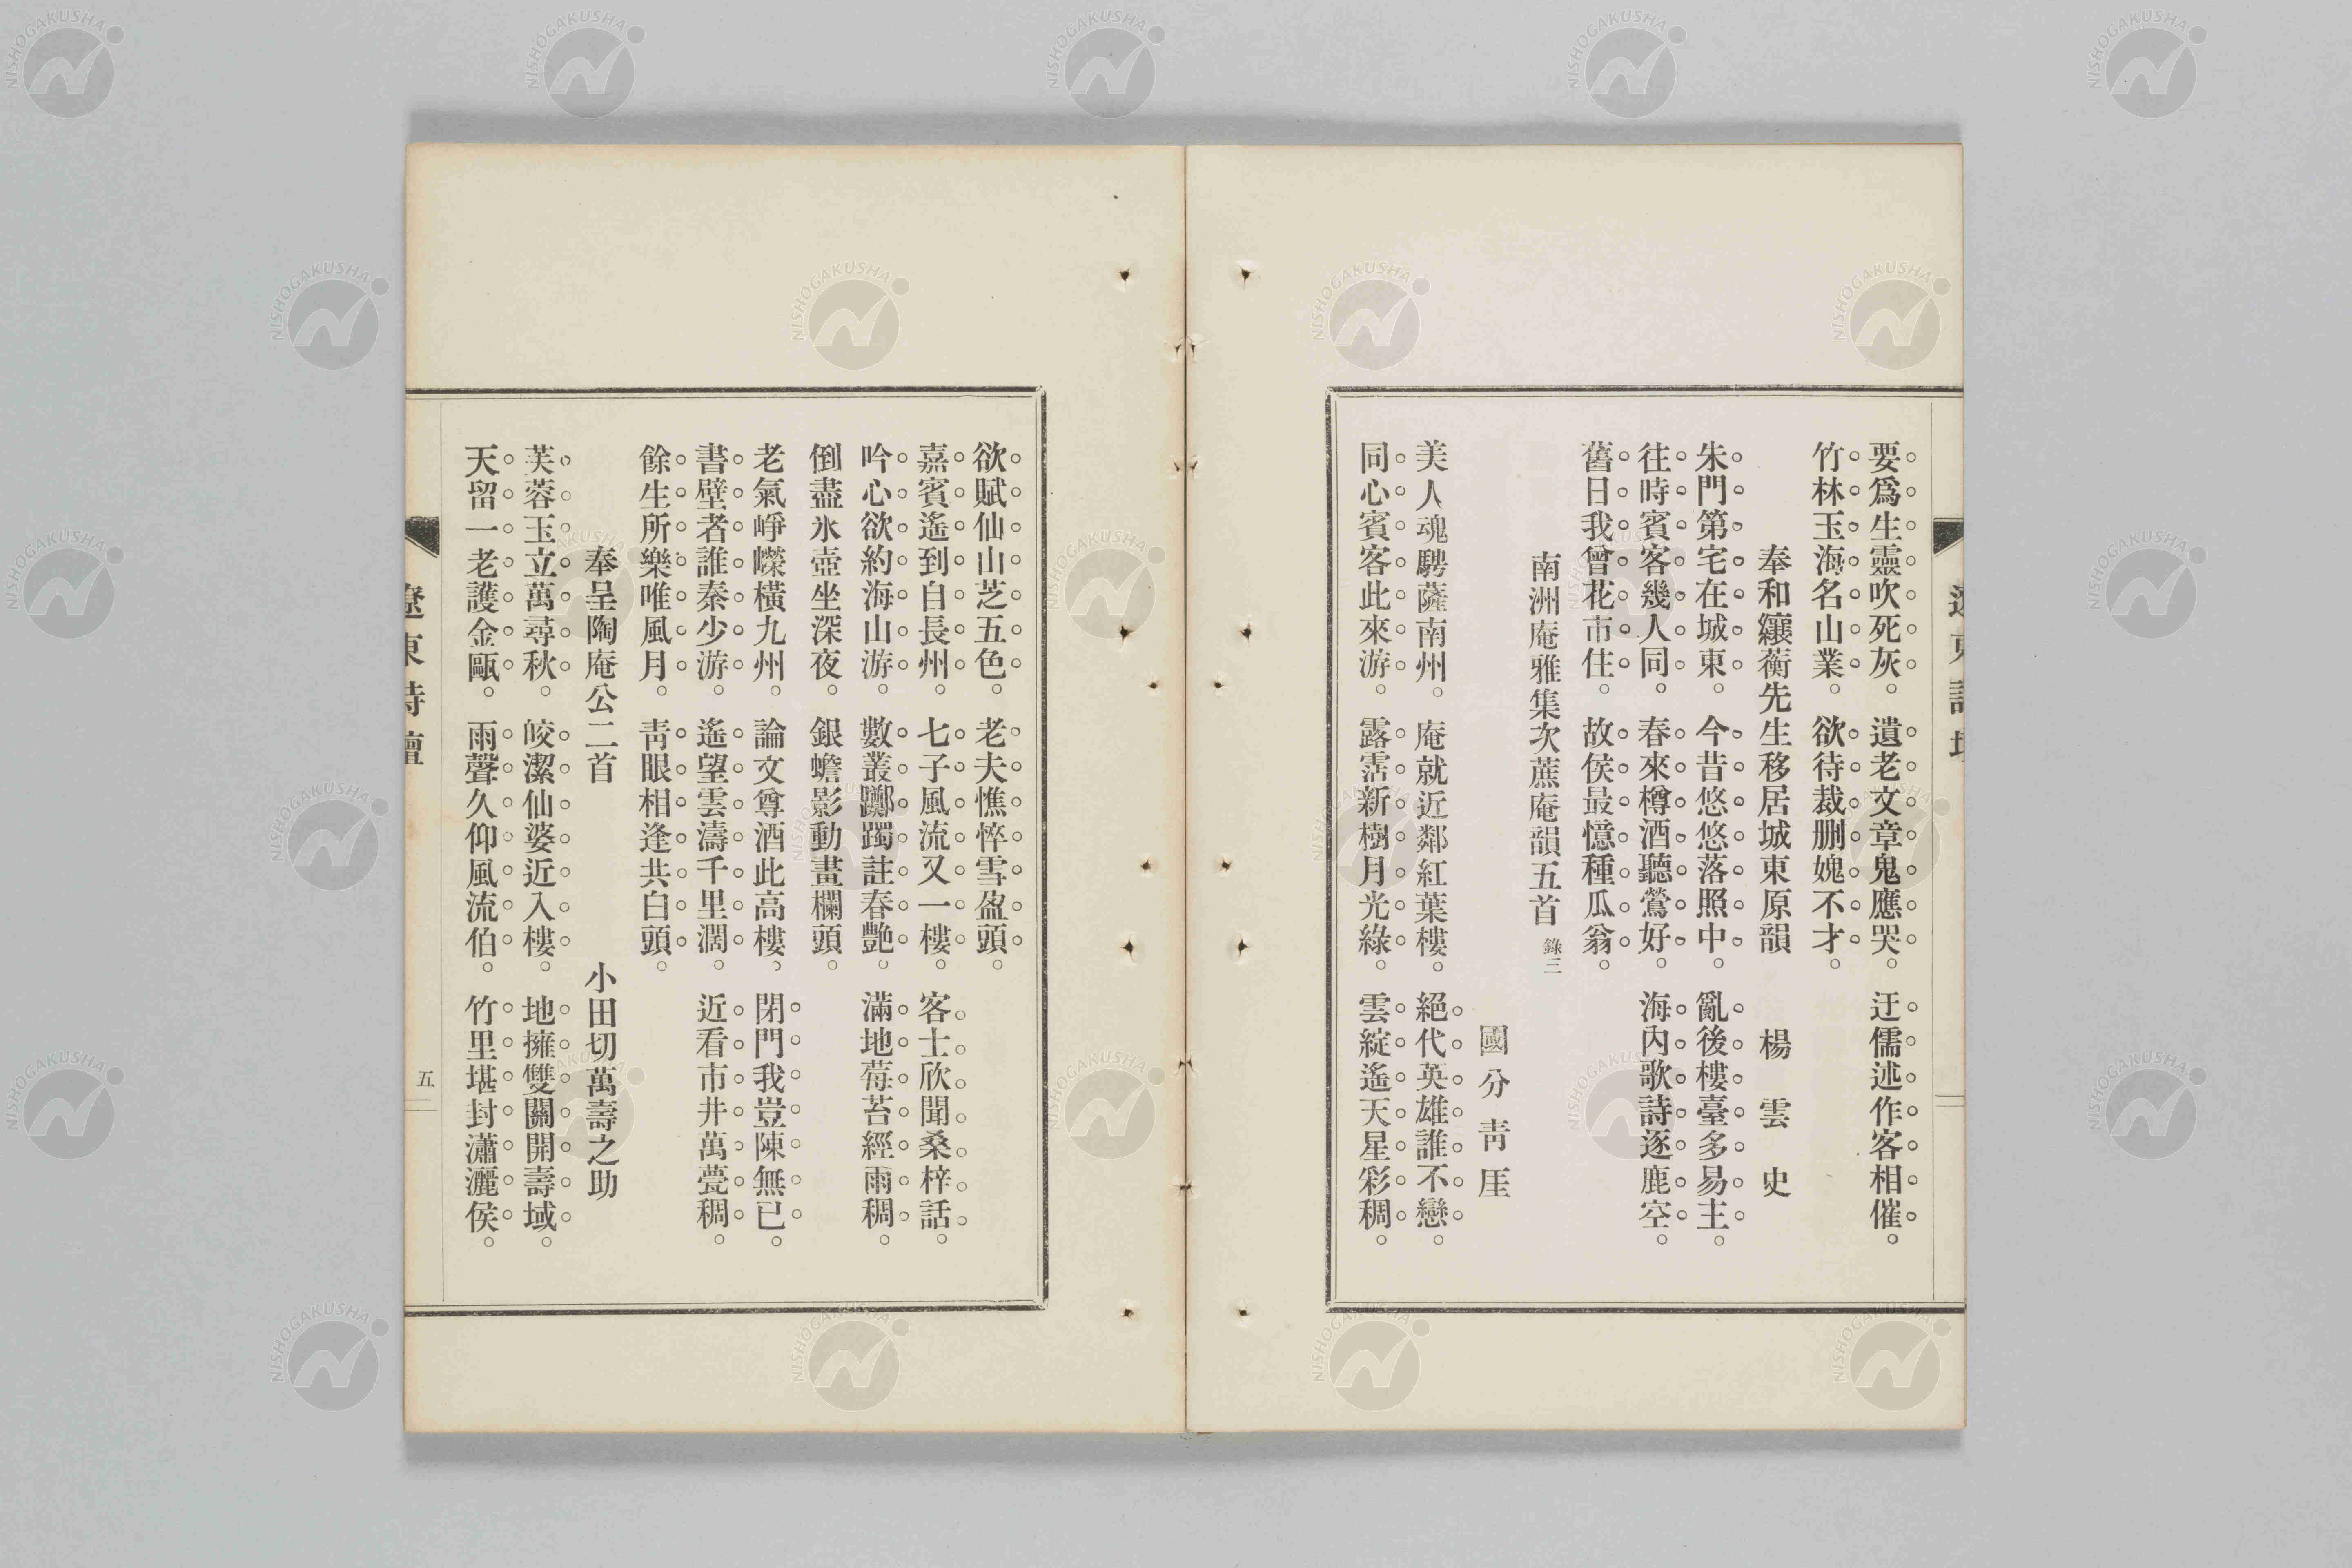 要爲生靈吹死灰。遺老文章鬼應哭。迂儒述作客相催。
竹林玉海名山業。欲待裁删媿不才。
奉和纕蘅先生移居城東原韻 楊雲史
朱門第宅在城東。今昔悠悠落照中。亂後樓臺多易主。
往時賓客幾人同。春來樽酒聽鶯好。海內歌詩逐鹿空。
舊日我曾花市住。故侯最憶種瓜翁。
南洲庵雅集次蔗庵韻五首 錄三
國分靑厓
美人魂騁薩南州。庵就近鄰紅葉樓。絕代英雄誰不戀。
同心賓客此來游。露霑新樹月光綠。雲綻遙天星彩稠。
欲賦仙山芝五色。老夫憔悴雪盈頭。
嘉賓遙到自長州。七子風流又一樓。客士欣聞桑梓話。
吟心欲約海山游。數叢躑躅註春艷。滿地莓苔經雨稠。
倒盡氷壺坐深夜。銀蟾影動畫欄頭。
老氣崢嶸橫九州。論文尊酒此高樓。閉門我豈陳無已。
書壁者誰秦少游。遙望雲濤千里濶。近看市井萬甍稠。
餘生所樂唯風月。靑眼相逢共白頭。
奉呈陶庵公二首 小田切萬壽之助
芙蓉玉立萬尋秋。皎潔仙婆近入樓。地擁雙關開壽域。
天留一老護金甌。雨聲久仰風流伯。竹里堪封瀟灑侯。
遼東詩壇
五
NISHOGAKUSHA